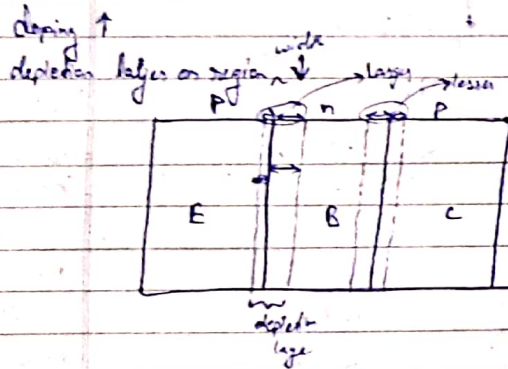 doping ↑
depletion layer or region width ↓
larger
lesser
P n P
E B C
depletn
layer